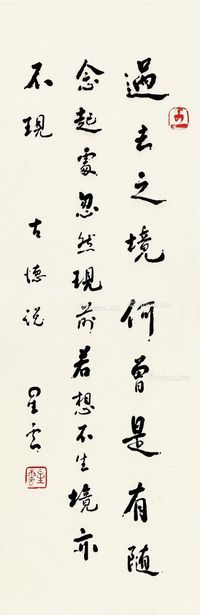 過去之境何曾是有随
念起處忽然現前若想不生境亦
不現
古德说
星雲
星雲